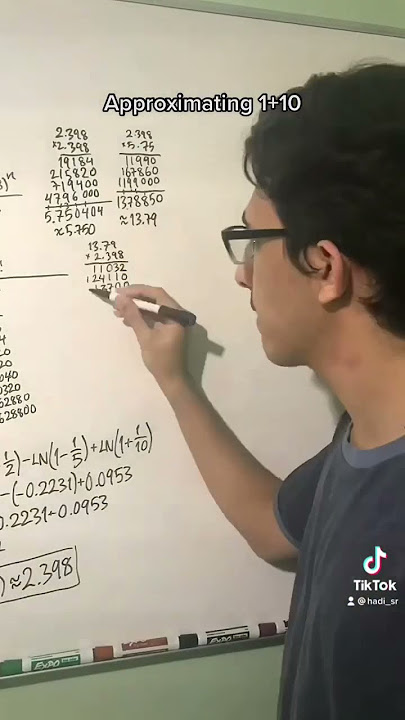 Approximating 1+10
2.398
×2.398
19184
215820
719400
4796000
5.750404
≈5.750
2.398
×5.75
11990
167860
1199000
1378850
≈13.79
13.79
×2.398
11032
124110
n
!
20
20
040
0320
62880
628800
1/2)-LN(1-1/5)+LN(1+1/10)
-(-0.2231)+0.0953
0.2231+0.0953
)≈2.398
EXPO
TikTok
@hadi_sr